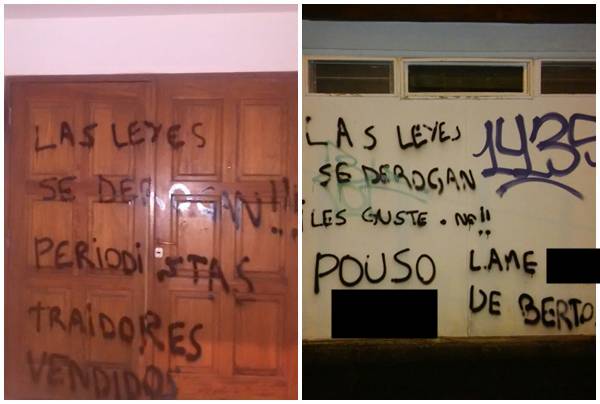 LAS LEYES
SE DEROGAN!!!
PERIODISTAS
TRAIDORES
VENDIDOS
LAS LEYES
SE DEROGAN
¡LES GUSTE o NO!!
POUSO
LAME
DE BERTO
1435